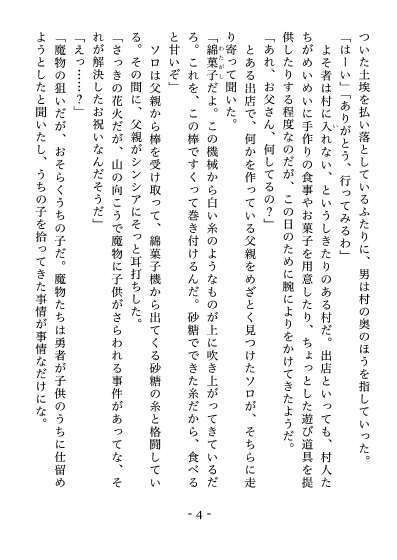 ついた土埃を払い落としているふたりに、男は村の奥のほうを指していった。
「はーい」「ありがとう、行ってみるわ」
よそ者は村に入れない、というしきたりのある村だ。出店といっても、村人た
ちがめいめいに手作りの食事やお菓子を用意したり、ちょっとした遊び道具を提
供したりする程度なのだが、この日のために腕によりをかけてきたようだ。
「あれ、お父さん、何してるの？」
とある出店で、何かを作っている父親をめざとく見つけたソロが、そちらに走
り寄って聞いた。
「綿菓子だよ。この機械から白い糸のようなものが上に吹き上がってきているだ
ろ。これを、この棒ですくって巻き付けるんだ。砂糖でできた糸だから、食べる
と甘いぞ」
ソロは父親から棒を受け取って、綿菓子機から出てくる砂糖の糸と格闘してい
る。その間に、父親がシンシアにそっと耳打ちした。
「さっきの花火だが、山の向こうで魔物に子供がさらわれる事件があってな、そ
れが解決したお祝いなんだそうだ」
「えっ……？」
「魔物の狙いだが、おそらくうちの子だ。魔物たちは勇者が子供のうちに仕留め
ようとしたと聞いたし、うちの子を拾ってきた事情が事情なだけにな。
- 4 -